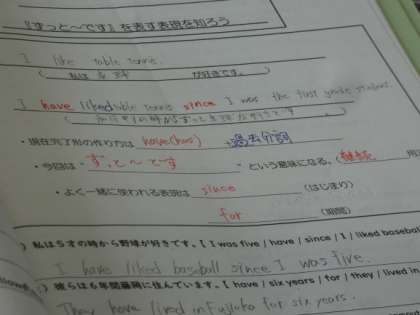 『ずっと〜です』を表す表現を知ろう
I like table tennis.
(私は 卓球 が好きです。)
I have liked table tennis since I was the first grade student.
・現在完了形の作り方は have(has) +過去分詞
・今回は ずっと〜です という意味になる。(継続 用
・よく一緒に使われる表現は since (はじまり)
for (期間)
) 私は5才の時から野球が好きです。【 I was five / have / since / I / liked baseball
I have liked baseball since I was five.
) 彼らは6年間福岡に住んでいます。【 have / six years / for / they / lived in
They have lived in Fukuoka for six years.